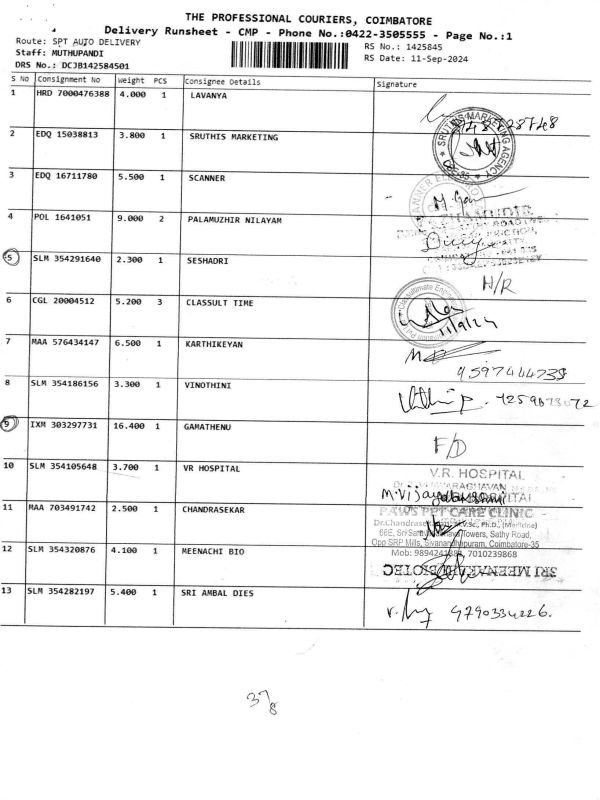 THE PROFESSIONAL COURIERS, COIMBATORE
Delivery Runsheet - CMP - Phone No.:0422-3505555 - Page No.:1
Route: SPT AUTO DELIVERY
Staff: MUTHUPANDI
DRS No.: DCJB142584501
RS No.: 1425845
RS Date: 11-Sep-2024
S No Consignment No Weight PCS Consignee Details Signature
1 HRD 7000476388 4.000 1 LAVANYA
2 EDQ 15038813 3.800 1 SRUTHIS MARKETING
SRUTHIS MARKETING AGENCY
CBE-35
3 EDQ 16711780 5.500 1 SCANNER
4 POL 1641051 9.000 2 PALAMUZHIR NILAYAM
5 SLM 354291640 2.300 1 SESHADRI H/R
6 CGL 20004512 5.200 3 CLASSULT TIME
11/9/24
7 MAA 576434147 6.500 1 KARTHIKEYAN
8 SLM 354186156 3.300 1 VINOTHINI
9 IXM 303297731 16.400 1 GAMATHENU F/D
10 SLM 354105648 3.700 1 VR HOSPITAL
V.R. HOSPITAL
M.Vijayalakshmi
11 MAA 703491742 2.500 1 CHANDRASEKAR
PAWS PET CARE CLINIC
M.V.Sc., Ph.D., (Medicine)
66E, Towers, Sathy Road,
Opp SRP Mills, Sivanandhapuram, Coimbatore-35
7010239868
12 SLM 354320876 4.100 1 MEENACHI BIO
13 SLM 354282197 5.400 1 SRI AMBAL DIES
9790334226.
37/8